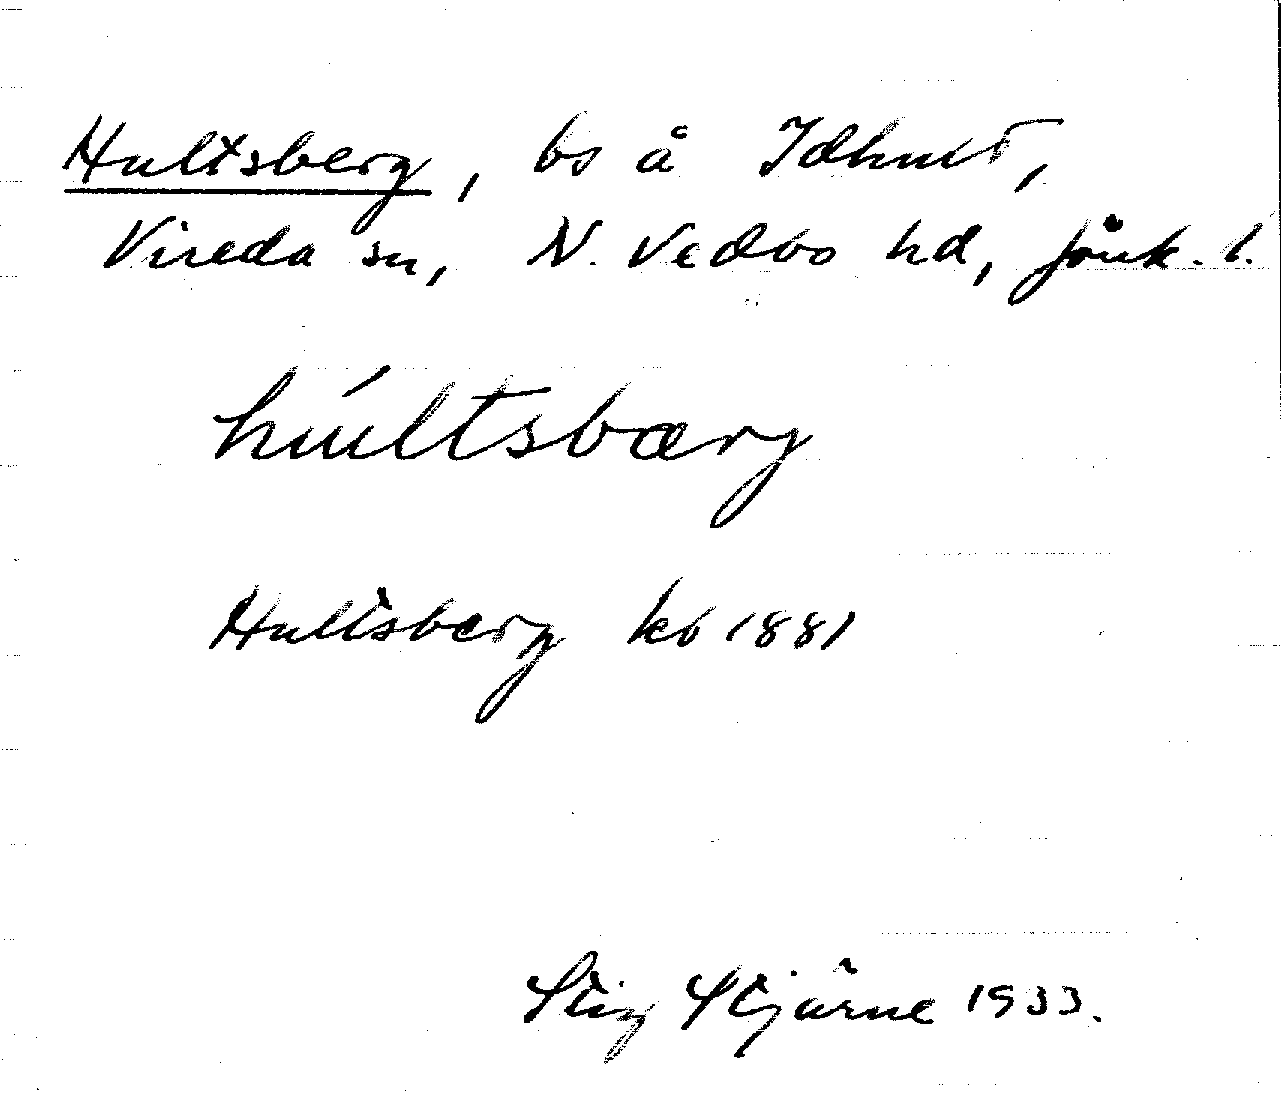 Hultsberg, bs å Idhult,
Vireda sn, N. Vedbo hd, Jönk. l.
húltsbærj
Hultsberg kb 1881
Stig Stjärne 1933.